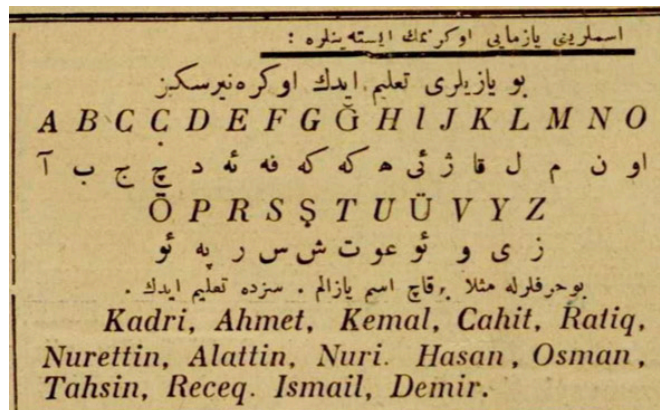 اسملرینی یازمایی اوکرنمك ایسته‌ینلره :
بو یازیلری تعلیم ایدك اوكره‌نیرسكیز
A B C Ç D E F G Ğ H I J K L M N O
آ ب ج چ د ئه فه كه كه ھ ئی ژ قا ل م ن او
Ö P R S Ş T U Ü V Y Z
ئو په ر س ش ت عو ئو و ی ز
بوحرفلرله مثلا بر قاچ اسم یازالم . سزده تعلیم ایدك .
Kadri, Ahmet, Kemal, Cahit, Ratiq,
Nurettin, Alattin, Nuri. Hasan, Osman,
Tahsin, Receq. Ismail, Demir.